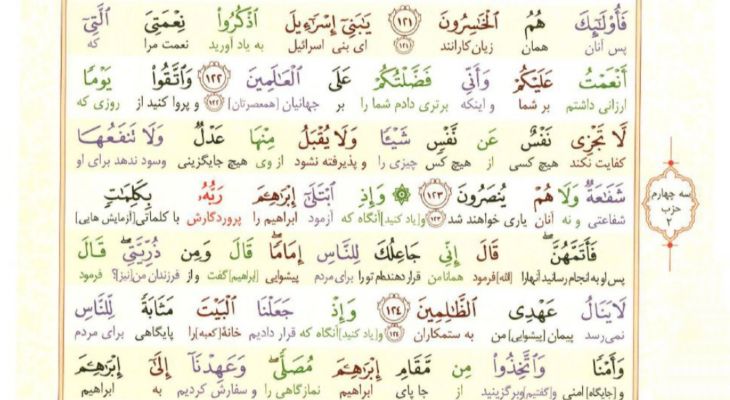 فَأُولَٰئِكَ هُمُ الْخَاسِرُونَ ﴿۱۲۱﴾ يَا بَنِي إِسْرَائِيلَ اذْكُرُوا نِعْمَتِيَ الَّتِي
پس آنان همان زیان‌کارانند (۱۲۱) ای بنی اسرائیل به یاد آورید نعمت مرا که
أَنْعَمْتُ عَلَيْكُمْ وَأَنِّي فَضَّلْتُكُمْ عَلَى الْعَالَمِينَ ﴿۱۲۲﴾ وَاتَّقُوا يَوْمًا
ارزانی داشتم بر شما و اینکه برتری دادم شما را بر جهانیان [همعصرتان] (۱۲۲) و پروا کنید از روزی که
لَّا تَجْزِي نَفْسٌ عَن نَّفْسٍ شَيْئًا وَلَا يُقْبَلُ مِنْهَا عَدْلٌ وَلَا تَنفَعُهَا
کفایت نکند هیچ کسی از هیچ کس چیزی را و پذیرفته نشود از وی هیچ جایگزینی و سود ندهد برای او
شَفَاعَةٌ وَلَا هُمْ يُنصَرُونَ ﴿۱۲۳﴾ ۞ وَإِذِ ابْتَلَىٰ إِبْرَاهِيمَ رَبُّهُ بِكَلِمَاتٍ
شفاعتی و نه آنان یاری خواهند شد (۱۲۳) و [یاد کنید] آنگاه که آزمود ابراهیم را پروردگارش با کلماتی [آزمایش هایی]
فَأَتَمَّهُنَّ ۖ قَالَ إِنِّي جَاعِلُكَ لِلنَّاسِ إِمَامًا ۖ قَالَ وَمِن ذُرِّيَّتِي ۖ قَالَ
پس او به انجام رسانید آنها را [الله] فرمود همانا من قرار دهنده‌ام تو را برای مردم پیشوایی [ابراهیم] گفت و از فرزندان من [نیز]؟ فرمود
لَا يَنَالُ عَهْدِي الظَّالِمِينَ ﴿۱۲۴﴾ وَإِذْ جَعَلْنَا الْبَيْتَ مَثَابَةً لِّلنَّاسِ
نمی‌رسد پیمان [پیشوایی] من به ستمکاران (۱۲۴) و [یاد کنید] آنگاه که قرار دادیم خانهٔ [کعبه] را پایگاهی برای مردم
وَأَمْنًا وَاتَّخِذُوا مِن مَّقَامِ إِبْرَاهِيمَ مُصَلًّى ۖ وَعَهِدْنَا إِلَىٰ إِبْرَاهِيمَ
و [جایگاه] امنی و [گفتیم] برگزینید از جا پای ابراهیم نمازگاهی را و سفارش کردیم به ابراهیم
سه چهارم
حزب
۲